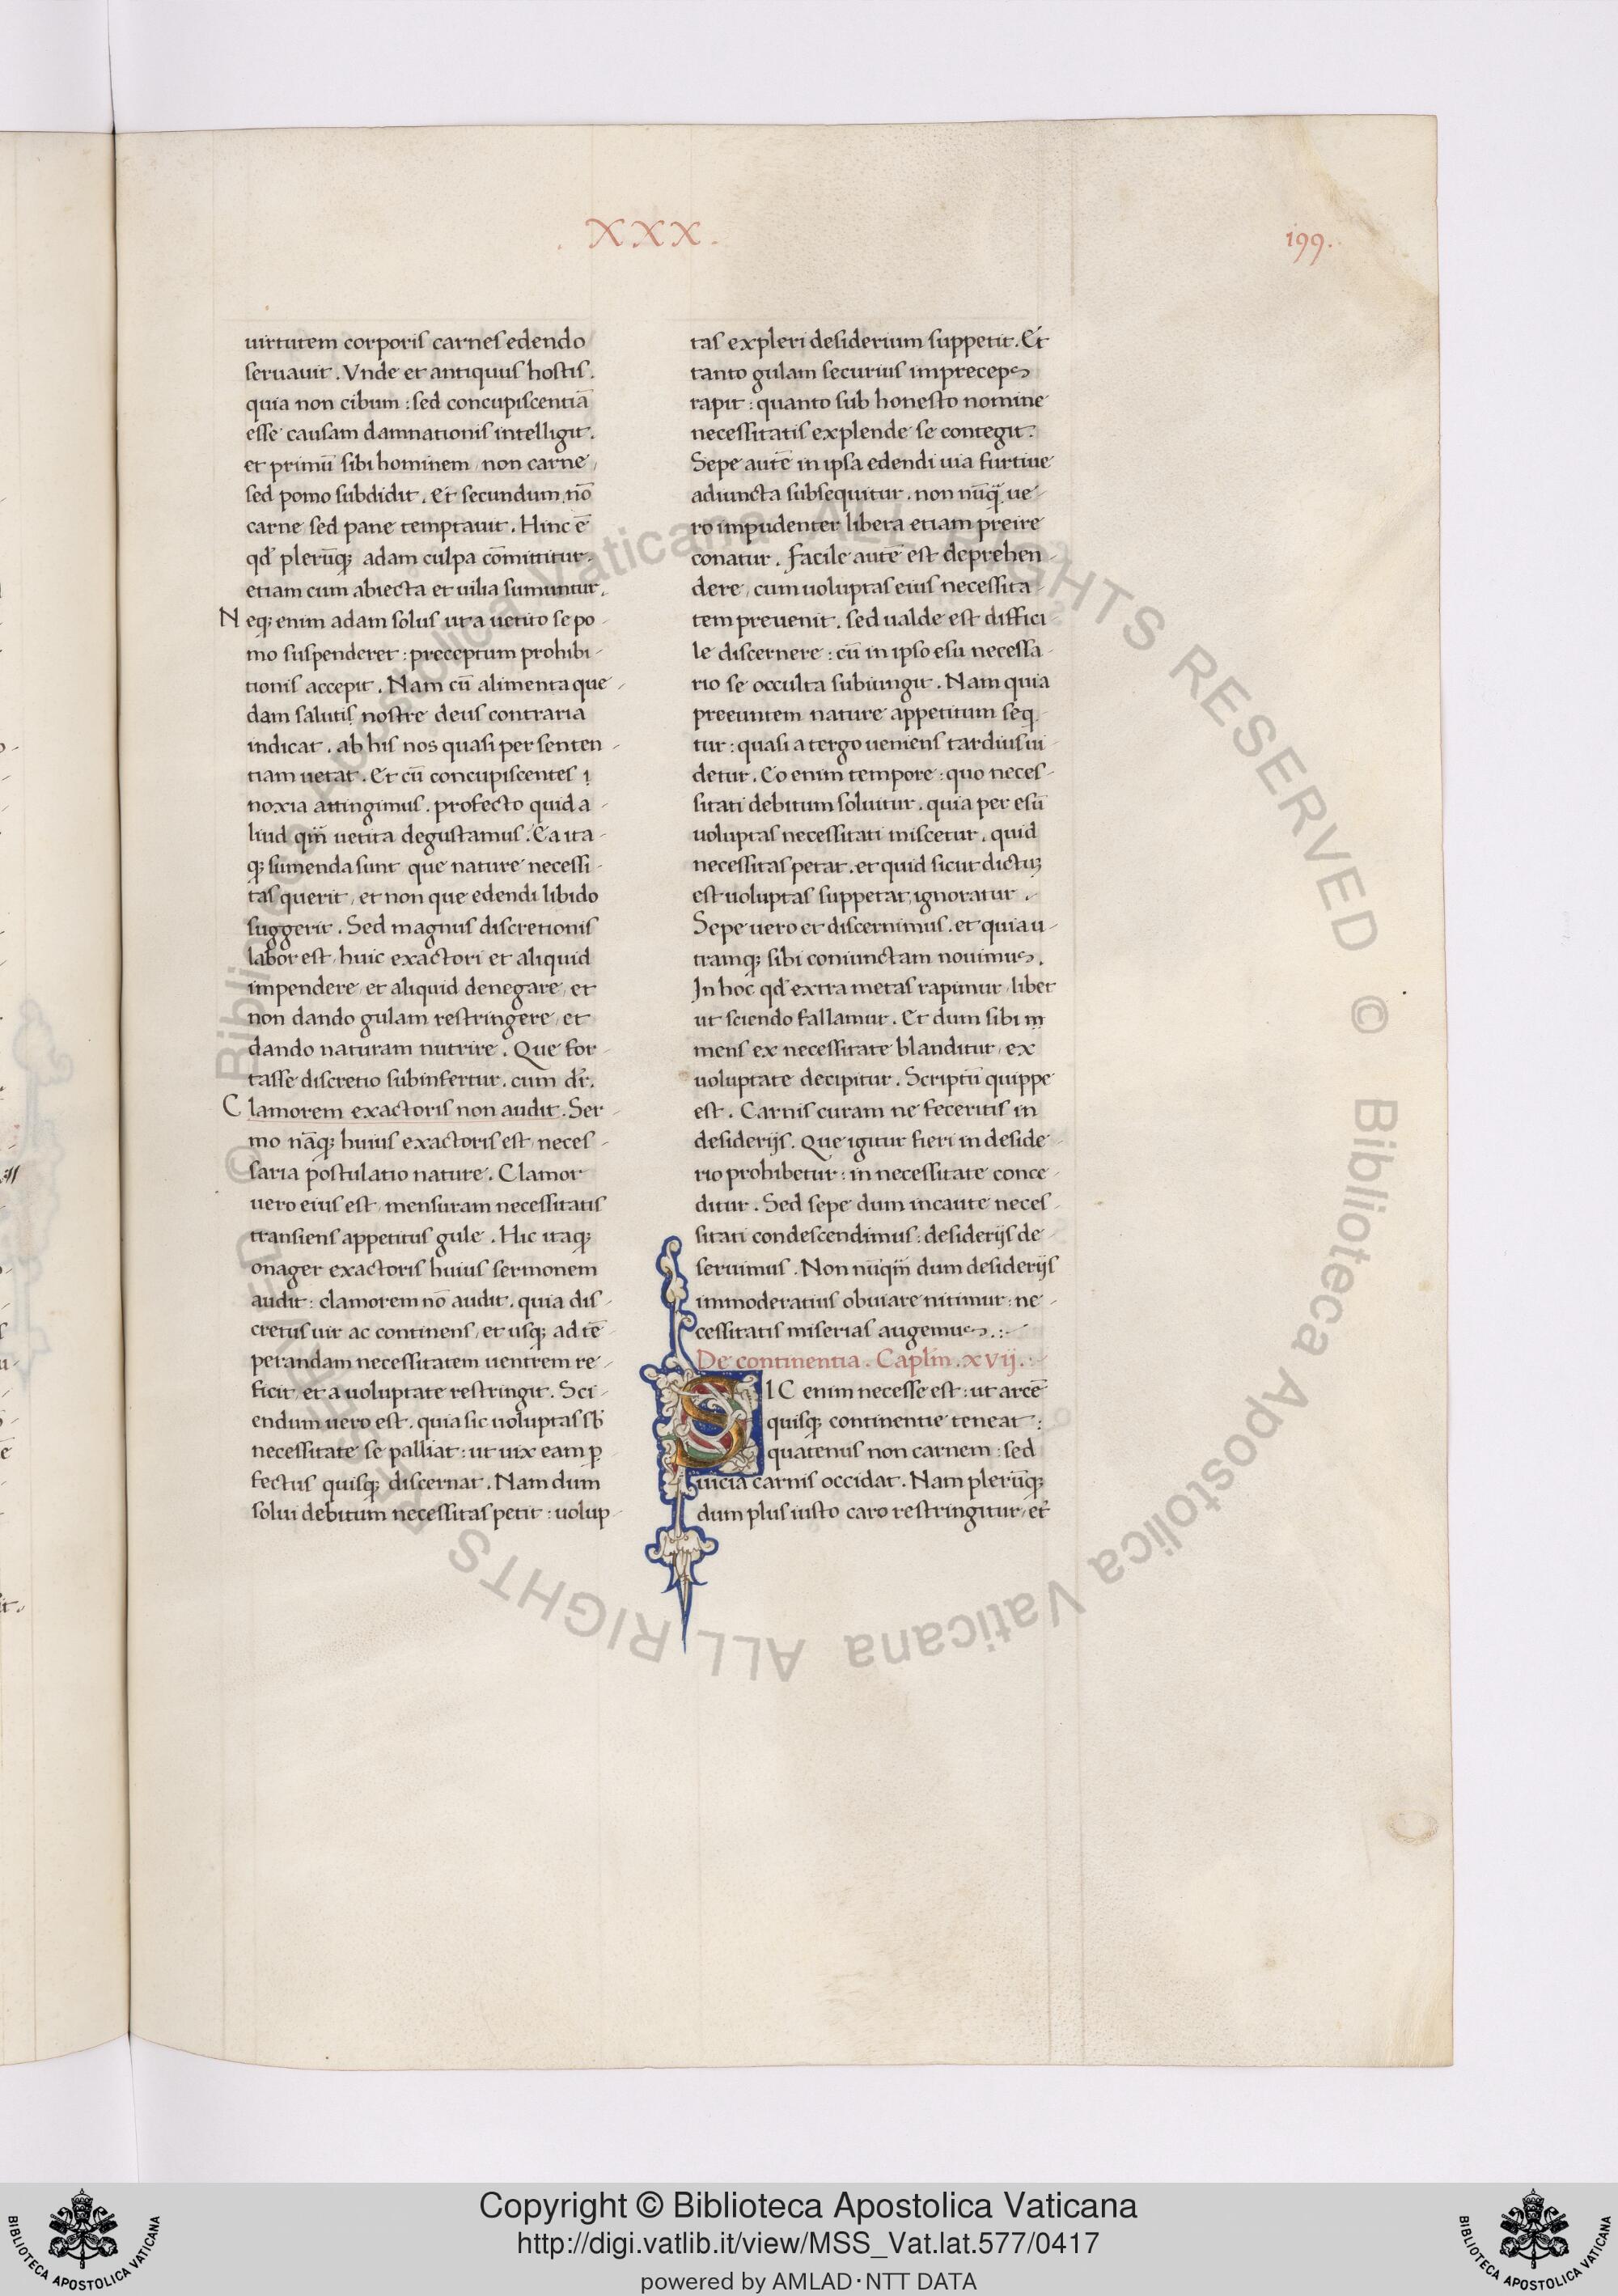 . XXX .
199.
uirtutem corporis carnes edendo
seruauit . Vnde et antiquus hostis .
quia non cibum : sed concupiscentiā
esse causam damnationis intelligit .
et primū sibi hominem / non carne /
sed pomo subdidit . Et secundum nō
carne sed pane temptauit . Hinc ē
qd̄ plerūq; adam culpa cōmittitur .
etiam cum abiecta et uilia sumuntur .
Neq; enim adam solus ut a uetito se po
mo suspenderet : preceptum prohibi -
tionis accepit . Nam cū alimenta que -
dam salutis nostre deus contraria
indicat . ab his nos quasi per senten -
tiam uetat . Et cū concupiscentes i
noxia attingimus . profecto quid a -
liud qm̄ uetita degustamus . Ea ita -
q; sumenda sunt que nature necessi -
tas querit / et non que edendi libido
suggerit . Sed magnus discretionis
labor est / huic exactori et aliquid
impendere / et aliquid denegare / et
non dando gulam restringere / et
dando naturam nutrire . Que for -
tasse discretio subinfertur . cum dr̄ .
Clamorem exactoris non audit . Ser -
mo nāq; huius exactoris est / neces -
saria postulatio nature . Clamor
uero eius est / mensuram necessitatis
transiens appetitus gule . Hic itaq;
onager exactoris huius sermonem
audit : clamorem nō audit . quia dis -
cretus uir ac continens / et usq; ad tē -
perandam necessitatem uentrem re -
ficit / et a uoluptate restringit . Sci -
endum uero est . quia sic uoluptas sb̄
necessitate se palliat : ut uix eam ꝑ
fectus quisq; discernat . Nam dum
solui debitum necessitas petit : uolup -
tas expleri desiderium suppetit . Et
tanto gulam securius in preceps
rapit : quanto sub honesto nomine
necessitatis explende se contegit .
Sepe autē in ipsa edendi uia furtiue
adiuncta subsequitur . non nūq̄ ue -
ro impudenter libera etiam preire
conatur . facile autē est deprehen -
dere / cum uoluptas eius necessita -
tem preuenit . sed ualde est diffici
le discernere : cū in ipso esu necessa -
rio se occulta subiungit . Nam quia
preeuntem nature appetitum seq
tur : quasi a tergo ueniens tardius ui
detur . Eo enim tempore : quo neces -
sitati debitum soluitur . quia per esū
uoluptas necessitati miscetur . quid
necessitas petat . et quid sicut dictuȝ
est uoluptas suppetat / ignoratur .
Sepe uero et discernimus . et quia u -
tramq; sibi coniunctam nouimus .
In hoc qd̄ extra metas rapimur / libet
ut sciendo fallamur . Et dum sibi m
mens ex necessitate blanditur / ex
uoluptate decipitur . Scriptū quippe
est . Carnis curam ne feceritis in
desiderijs . Que igitur fieri in deside -
rio prohibetur : in necessitate conce
ditur . Sed sepe dum incaute neces -
sitati condescendimus : desiderijs de -
seruimus . Non nūqm̄ dum desiderijs
immoderatius obuiare nitimur : ne -
cessitatis miserias augemus . : -
De continentia . Caplm̄ . xvij . :
SIC enim necesse est : ut arcē
quisq; continentie teneat :
quatenus non carnem : sed
uicia carnis occidat . Nam plerūq;
dum plus iusto caro restringitur / et
© Biblioteca Apostolica Vaticana ALL RIGHTS RESERVED
© Biblioteca Apostolica Vaticana ALL RIGHTS RESERVED
BIBLIOTECA APOSTOLICA VATICANA
Copyright © Biblioteca Apostolica Vaticana
http://digi.vatlib.it/view/MSS_Vat.lat.577/0417
powered by AMLAD·NTT DATA
BIBLIOTECA APOSTOLICA VATICANA